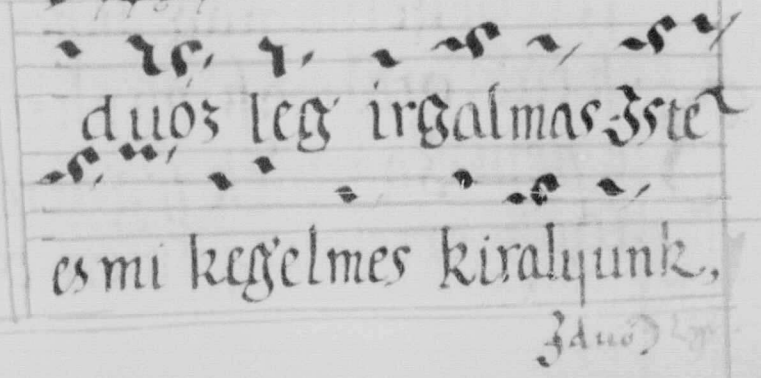 duóz leg irgalmas Iste
es mi kegelmes kiralyunk,
Iduo